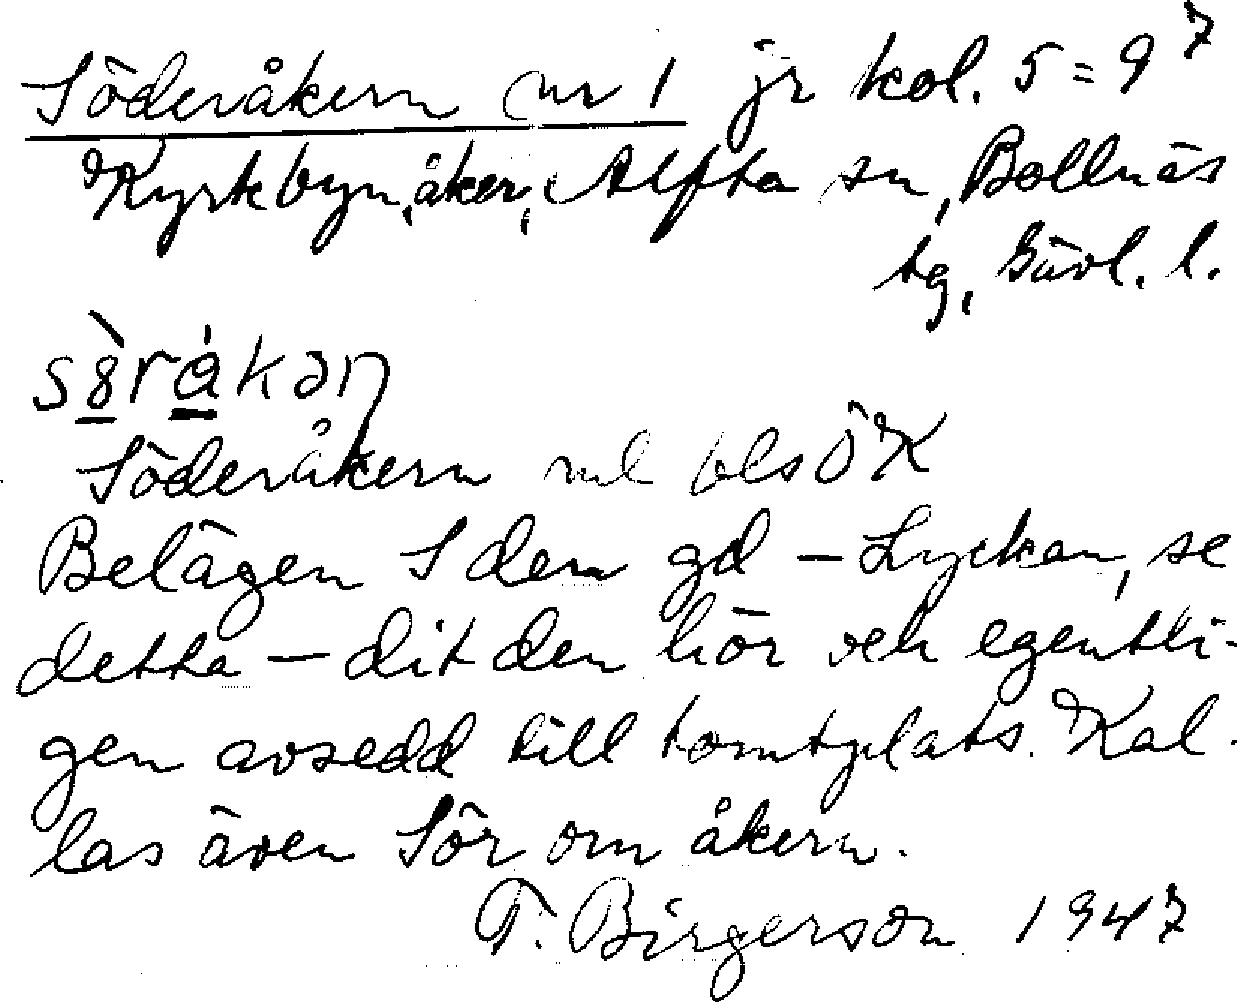 Söderåkern nr 1 jr kol. 5 = 9 7
Kyrkbyn, åker, Alfta sn, Bollnäs
tg, Gävl. l.
Söderåkern
Belägen S den gd – Lyckan, se
detta – dit den hör och egentli-
gen avsedd till tomtplats. Kal-
las även Sör om åkern.
T. Birgerson 1947